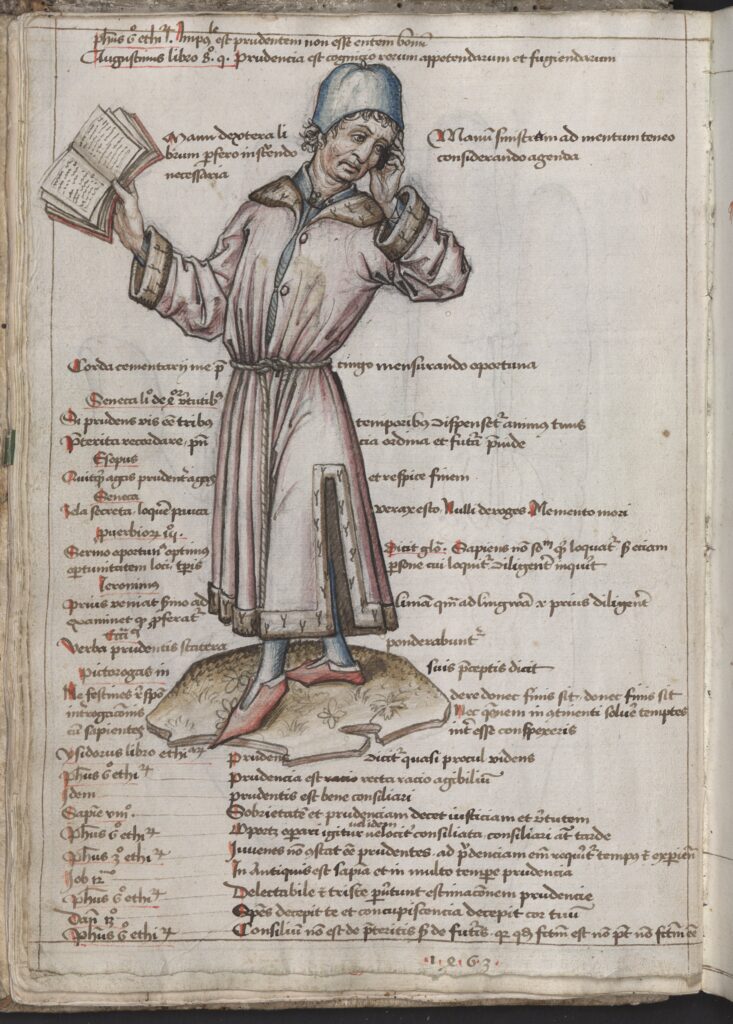 ph̄us 6º ethiꝝ. Impoˡᵉ est prudentem non esse entem bonū
Augustinus libro 8. q. Prudencia est cognicio rerum appetendarum et fugiendarum
Manu dextera li
brum ꝓfero inscrēndo
necessaria
Manū sinistram ad mentum teneo
considerando agenda
Corda cementarij me p̄ cingo mensurando oportuna
Seneca liº de 4ᵒʳ v̄tutibꝰ
Si prudens vis eē tribꝰ temporibꝰ dispenset̄ animus tuus
Pͭterita recordare, pn̄ cia ordina et futā puide
Esopus
Quitqͥd agas prudenter agas et respice finem
Seneca
Cela secreta, loquere pauca verax esto. Nulli deroges. Memento mori
ꝓuerbiorū iij.
Sermo oportunꝰ optimus Dicit glō. Sapiens nō sōm qͥ loquatꝛ sꝫ eciam
oportunitatem loci, tp̄is ꝑsone cui loquitꝛ diligentͤ inquirit
Ieronimus
Prius veniat sermo ad limam qm̄ ad lingwam ⁊ prius diligentͤ
examinet qͥ ꝓferatꝛ
Verba prudentis statera ponderabuntꝛ
Pictorogas in suis p̄ceptis dicit
Ne festines rn̄dere donec finis sit, donec finis sit
introgacionis Nec qōnem in attinenti soluere temptes
cū sapientes intͤ esse conspexeris
Ysidorus libro ethiꝝ Prudens dicitꝛ quasi procul videns
ph̄us 6º ethiꝝ Prudencia est recta racio agibiliū
Idem prudentis est bene consiliari
Sapiē viijº Sobrietatē et prudenciam docet iusticiam et v̄tutem
ph̄us 6º ethiꝝ Oportꝫ operari igitur velocitͤ consiliata, consiliari aūt tarde
ph̄us 3º ethiꝝ Iuuenes nō ꝯstat eē prudentes, ad p̄denciam em̄ requiritꝛ tempꝰ ⁊ expͥenciā
Iob 12º In Antiquis est sapiā et in multo tempͤ prudencia
ph̄us 6º ethiꝝ Delectabile ⁊ triste ꝑuertunt estimacōnem prudencie
Dan̄ 13º Spēs decepit te et concupiscencia decepit cor tuū
ph̄us 6º ethiꝝ Consiliū nō est de pͭteritis sꝫ de futīs. qꝛ qd̄ fctm̄ est nō pōt nō fctm̄ eē
·1·4·6·3·